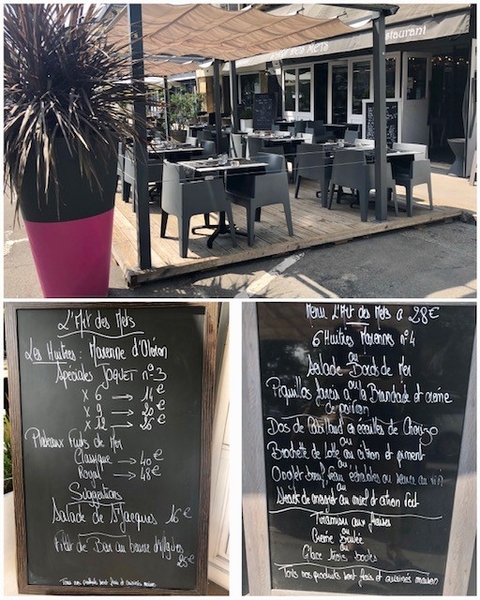 des Mets
Restaurant
L'Art des Mets
Les Huîtres : Marenne d'Oléron
Spéciales JOGUET n°3
x 6 → 14€
x 9 → 20€
x 12 → 26€
Plateaux Fruits de Mer
Classique → 40€
Royal → 48€
Suggestions
Salade de St Jacques 16€
Filet de Bar au beurre d'Algues
25€
Tous nos produits sont frais et cuisinés maison
Menu L'Art des Mets à 28€
6 Huîtres Marennes n°4
ou
Salade Bords de Mer
ou
Piquillos farcis à la Brandade et crème
de poivron
Dos de Cabillaud en écailles de Chorizo
ou
Brochette de lotte au citron et piment
ou
Onglet boeuf, échalotes ou beurre au vin
ou
au miel et citron
Tiramisu aux fraises
ou
Crème Brulée
ou
Glace trois boules
Tous nos produits sont frais et cuisinés maison